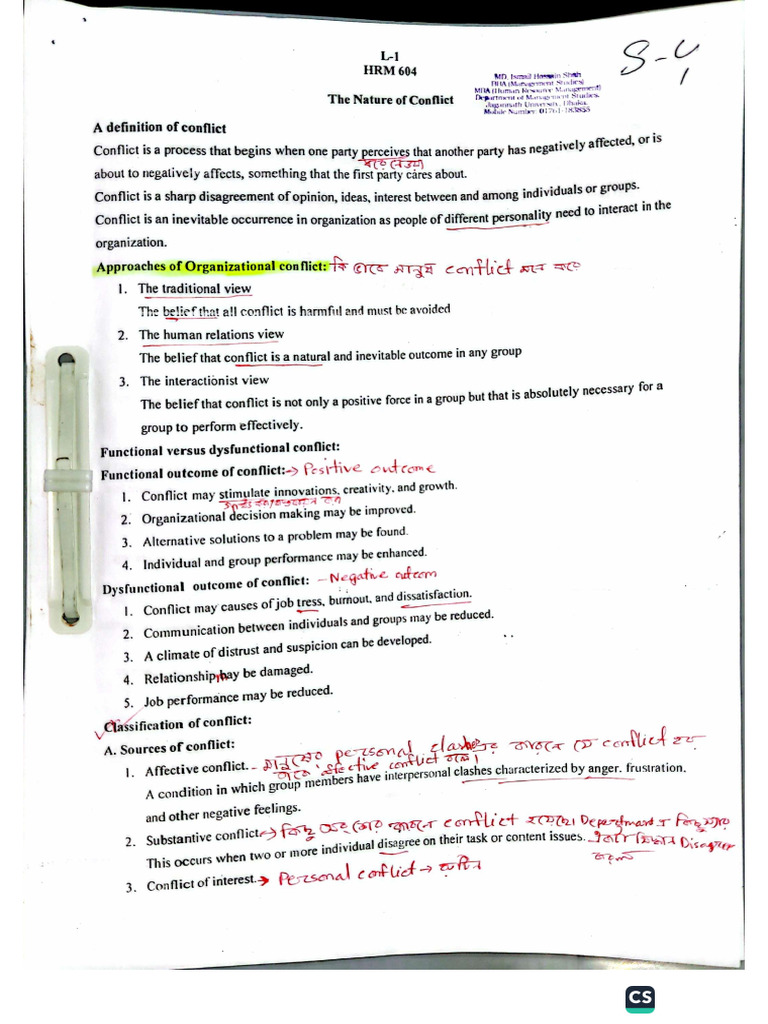 L-1
HRM 604
S-4
1
MD. Ismail Hossain Shah
BBA (Management Studies)
MBA (Human Resource Management)
Department of Management Studies.
Jagannath University, Dhaka.
Mobile Number: 01761-183855
The Nature of Conflict
A definition of conflict
Conflict is a process that begins when one party perceives that another party has negatively affected, or is
about to negatively affects, something that the first party cares about.
Conflict is a sharp disagreement of opinion, ideas, interest between and among individuals or groups.
Conflict is an inevitable occurrence in organization as people of different personality need to interact in the
organization.
Approaches of Organizational conflict: কি ভাবে মানুষ conflict মনে করে
1. The traditional view
The belief that all conflict is harmful and must be avoided
2. The human relations view
The belief that conflict is a natural and inevitable outcome in any group
3. The interactionist view
The belief that conflict is not only a positive force in a group but that is absolutely necessary for a
group to perform effectively.
Functional versus dysfunctional conflict:
Functional outcome of conflict:→ Positive outcome
1. Conflict may stimulate innovations, creativity, and growth.
2. Organizational decision making may be improved.
3. Alternative solutions to a problem may be found.
4. Individual and group performance may be enhanced.
Dysfunctional outcome of conflict: - Negative outcom
1. Conflict may causes of job tress, burnout, and dissatisfaction.
2. Communication between individuals and groups may be reduced.
3. A climate of distrust and suspicion can be developed.
4. Relationship may be damaged.
5. Job performance may be reduced.
Classification of conflict:
A. Sources of conflict:
1. Affective conflict. - personal clashes কারনে যে conflict হয়
তাকে conflict বলে।
A condition in which group members have interpersonal clashes characterized by anger, frustration,
and other negative feelings.
2. Substantive conflict→ কিছু কারনে conflict হয়েছে। Department
This occurs when two or more individual disagree on their task or content issues. Disagree
3. Conflict of interest.→ Personal conflict →
CS